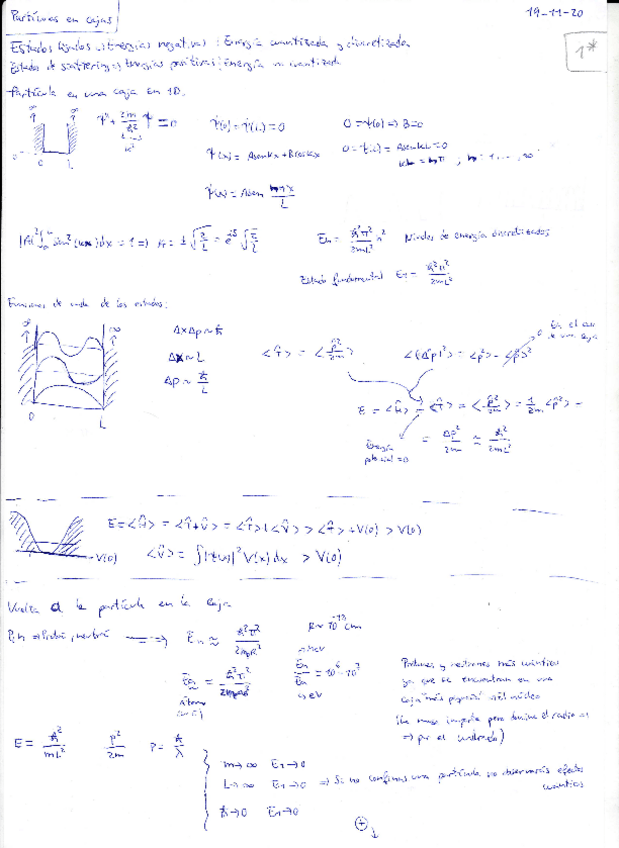 Partículas en cajas
19-11-20
1*
Estados ligados → Energías negativas: Energía cuantizada y discretizada
Estados de scattering → Energías positivas: Energía no cuantizada
Partícula en una caja en 1D.
ψ'' + 2m/ħ² ψ = 0
ψ(0) = ψ(L) = 0
0 = ψ(0) ⇒ B = 0
ψ(x) = A sen kx + B cos kx
0 = ψ(L) = A sen kL = 0
kL = nπ ; n = 1, ..., ∞
ψ(x) = A sen nπx/L
|A|² ∫ sen²(kx) dx = 1 ⇒ A = ± √2/L = e^{iδ} √2/L
En = ħ²π²/2mL² n² Niveles de energía discretizados
Estado fundamental E1 = ħ²π²/2mL²
Funciones de onda de los estados:
Δx Δp ~ ħ
Δx ~ L
Δp ~ ħ/L
<T̂> = <p̂²/2m>
<(Δp)²> = <p²> - <p>²
0 En el caso de una caja
E = <Ĥ> = <T̂> = <p̂²/2m> = 1/2m <p̂²> =
= Δp²/2m ≈ ħ²/2mL²
Energía potencial = 0
0 L
E = <Ĥ> = <T̂+V̂> = <T̂> + <V̂> > <T̂> + V(0) > V(0)
V(0)
<V̂> = ∫|ψ(x)|² V(x) dx > V(0)
Vuelta a la partícula en la caja
En ≈ ħ²π²/2mpR²
R ~ 10⁻¹³ cm
~ MeV
= ħ²π²
átomo
~ eV
= 10⁶ - 10⁷
Protones y neutrones más cuánticos
ya que se encuentran en una
caja "más pequeña" el núcleo
(La masa importa pero domina el radio
⇒ por el cuadrado)
E = ħ²/mL² p²/2m p = ħ/λ
m → ∞ E1 → 0
L → ∞ E1 → 0 ⇒ Si no confinas una partícula no observarás efectos
cuánticos
ħ → 0 E1 → 0